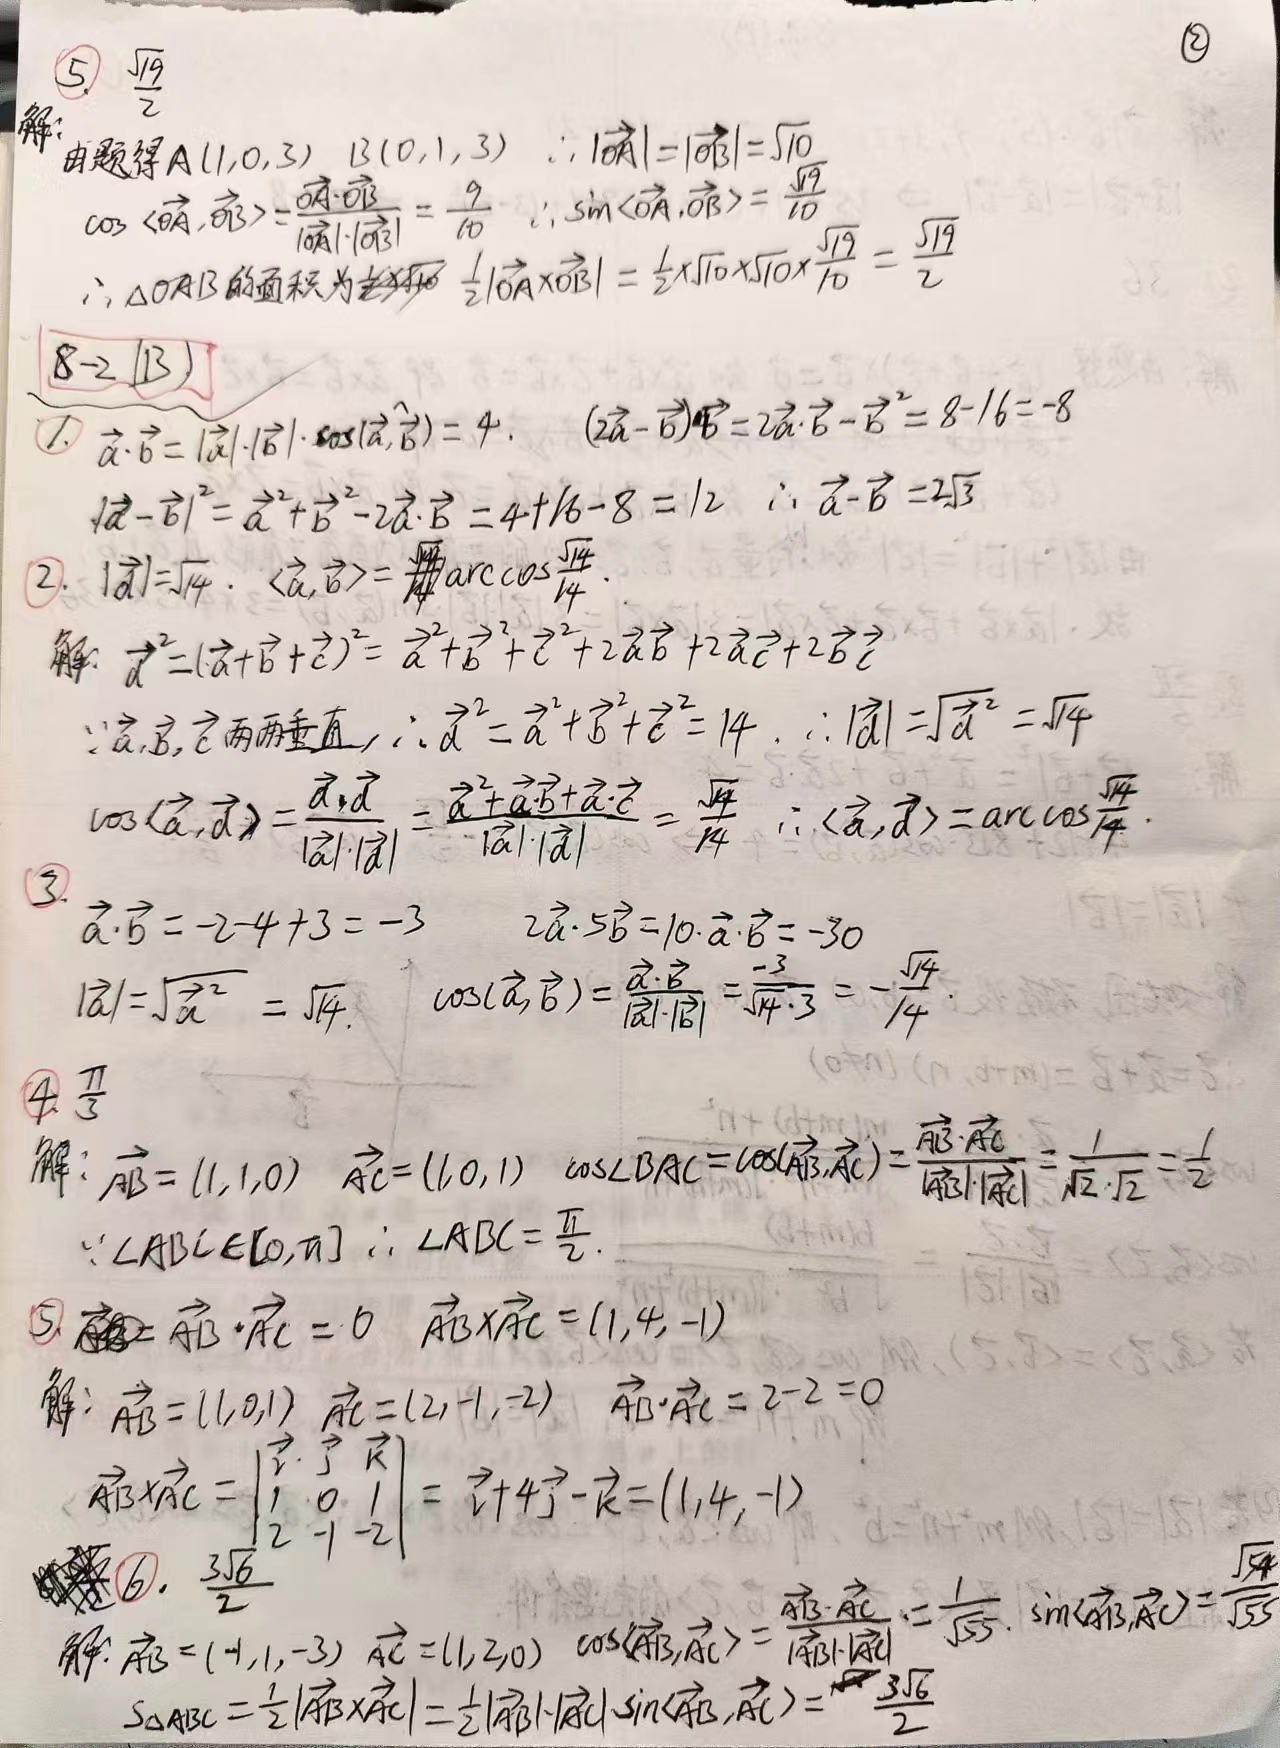 ②
5. √19/2
解:
由题得A(1,0,3) B(0,1,3) ∴|OA→|=|OB→|=√10
cos<OA→,OB→>=OA→·OB→/|OA→|·|OB→|=9/10 ∴sin<OA→,OB→>=√19/10
∴△OAB的面积为 1/2|OA→×OB→|=1/2×√10×√10×√19/10=√19/2
8-2(B)
1. a→·b→=|a→|·|b→|·cos(a→,b→)=4. (2a→-b→)·b→=2a→·b→-b→²=8-16=-8
|a→-b→|²=a→²+b→²-2a→·b→=4+16-8=12 ∴a→-b→=2√3
2. |d→|=√14. <a→,b→>=arccos√14/14.
解: d→²=(a→+b→+c→)²=a→²+b→²+c→²+2a→b→+2a→c→+2b→c→
∵a→,b→,c→两两垂直,∴d→²=a→²+b→²+c→²=14. ∴|d→|=√d→²=√14
cos<a→,d→>=a→·d→/|a→|·|d→|=a→²+a→·b→+a→·c→/|a→|·|d→|=√14/14 ∴<a→,d→>=arccos√14/14.
3.
a→·b→=-2-4+3=-3 2a→·5b→=10·a→·b→=-30
|a→|=√a→²=√14. cos(a→,b→)=a→·b→/|a→|·|b→|=-3/√14·3=-√14/14.
4. π/3
解: AB→=(1,1,0) AC→=(1,0,1) cos∠BAC=cos(AB→,AC→)=AB→·AC→/|AB→|·|AC→|=1/√2·√2=1/2
∵∠ABC∈[0,π] ∴∠ABC=π/2.
5. AB→·AC→=0 AB→×AC→=(1,4,-1)
解: AB→=(1,0,1) AC→=(2,-1,-2) AB→·AC→=2-2=0
AB→×AC→=|i→ j→ k→; 1 0 1; 2 -1 -2|=i→+4j→-k→=(1,4,-1)
6. 3√6/2
解: AB→=(-1,1,-3) AC→=(1,2,0) cos<AB→,AC→>=AB→·AC→/|AB→|·|AC→|=1/√55. sin<AB→,AC→>=√54/√55
S△ABC=1/2|AB→×AC→|=1/2|AB→|·|AC→|·sin<AB→,AC→>=3√6/2